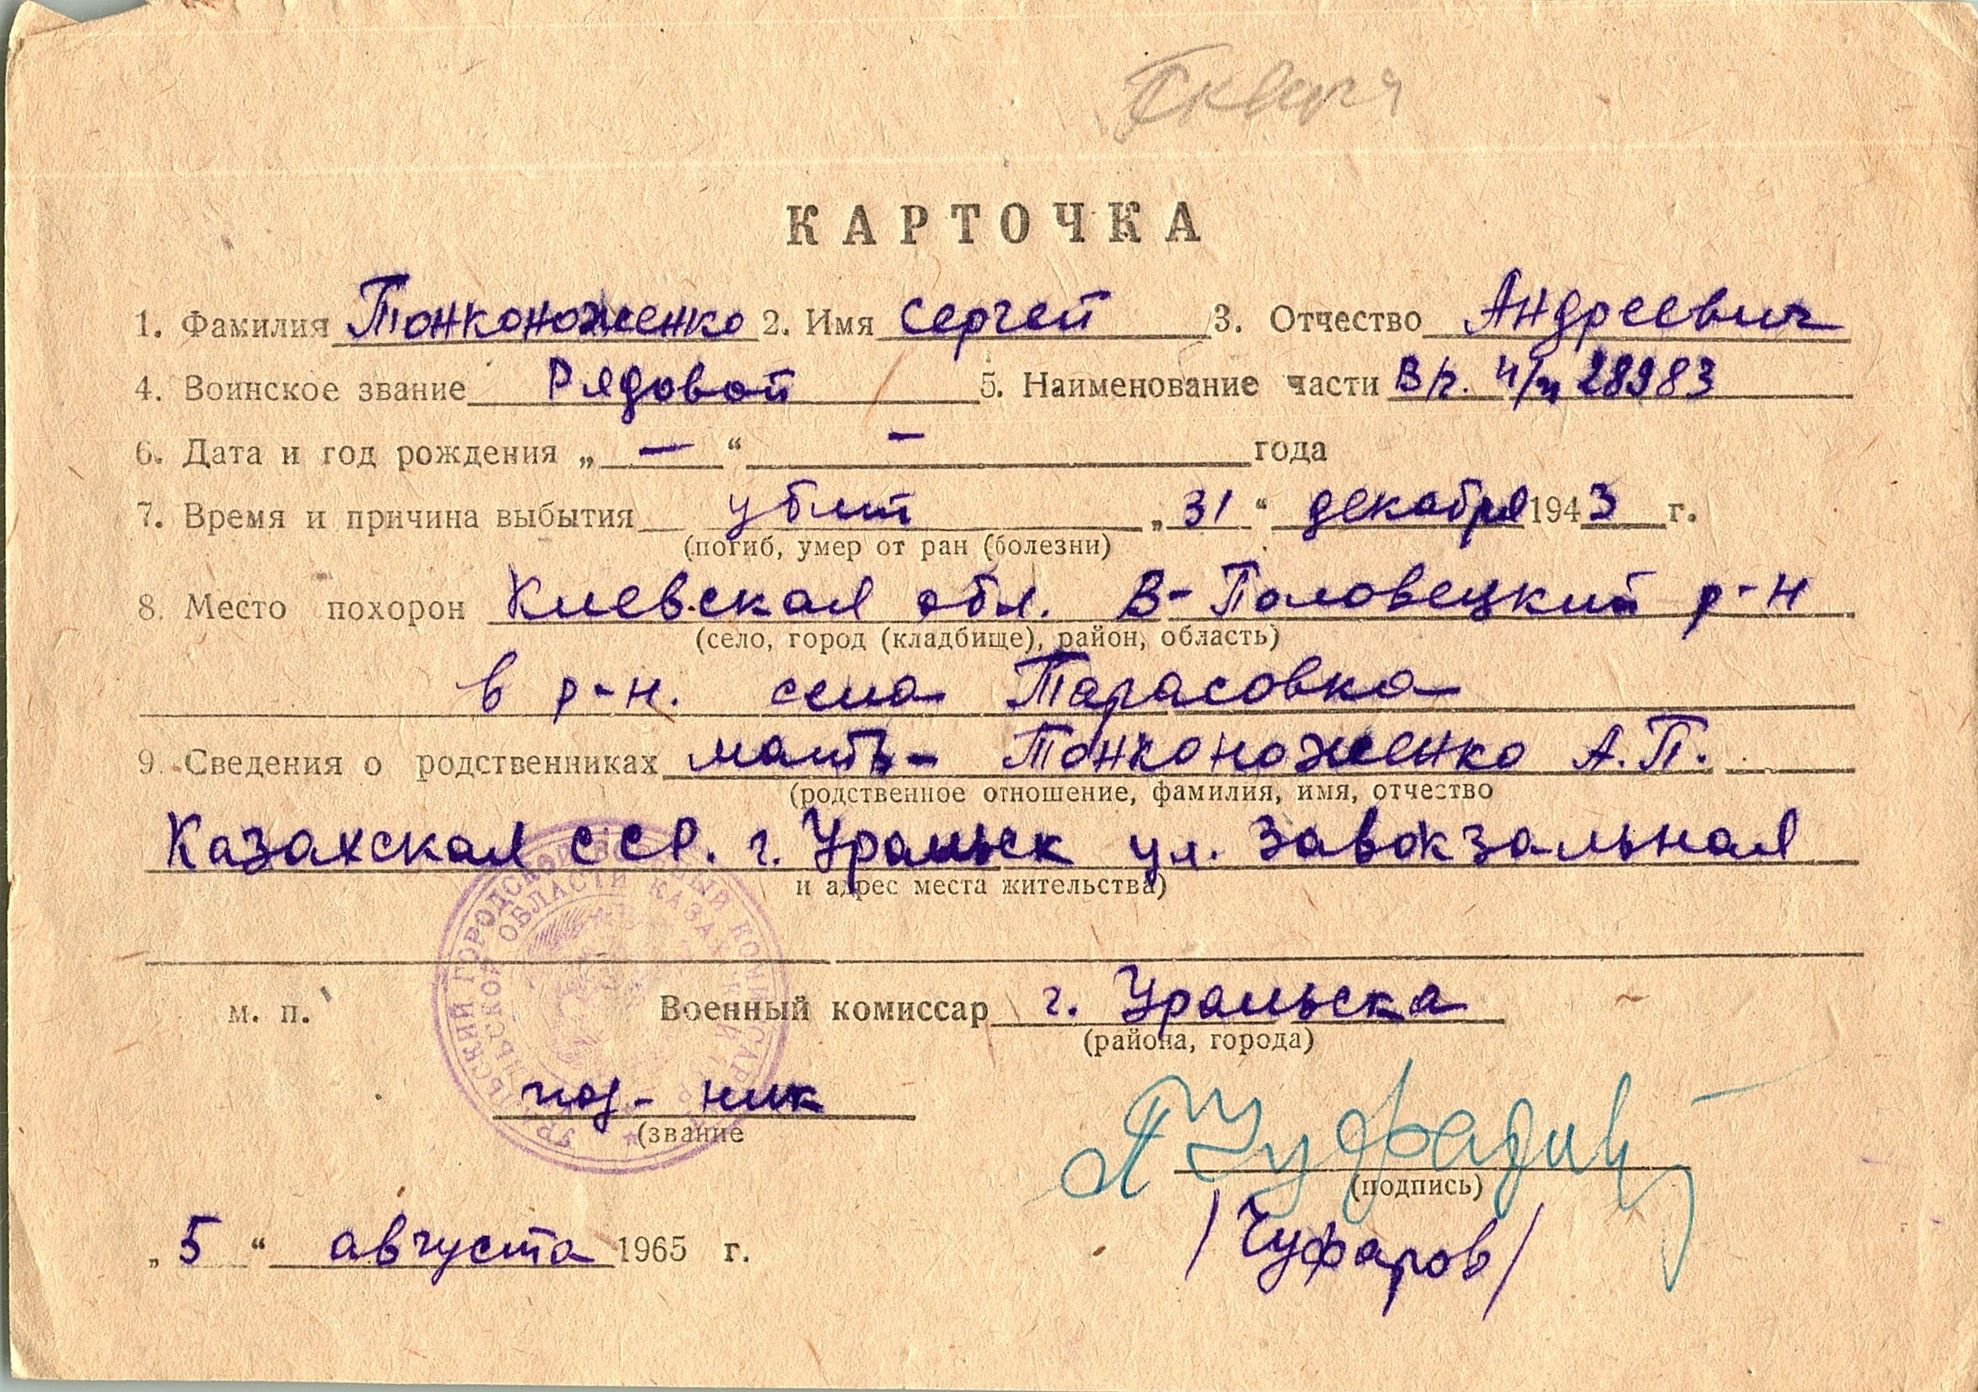 КАРТОЧКА
1. Фамилия Тонконоженко 2. Имя Сергей 3. Отчество Андреевич
4. Воинское звание Рядовой 5. Наименование части В/ч. п/п 28983
6. Дата и год рождения „ — “ — года
7. Время и причина выбытия убит „ 31 “ декабря 1943 г.
(погиб, умер от ран (болезни)
8. Место похорон Киевская обл. В-Половецкий р-н
(село, город (кладбище), район, область)
в р-н. села Тарасовка
9. Сведения о родственниках мать - Тонконоженко А.П.
(родственное отношение, фамилия, имя, отчество
Казахская ССР. г. Уральск ул. Завокзальная
и адрес места жительства)
УРАЛЬСКИЙ ГОРОДСКОЙ ВОЕННЫЙ КОМИССАРИАТ
УРАЛЬСКОЙ ОБЛАСТИ КАЗАХСКОЙ
м. п. Военный комиссар г. Уральска
(района, города)
под-ник
(звание
(подпись)
/Чуфаров/
„ 5 “ августа 1965 г.